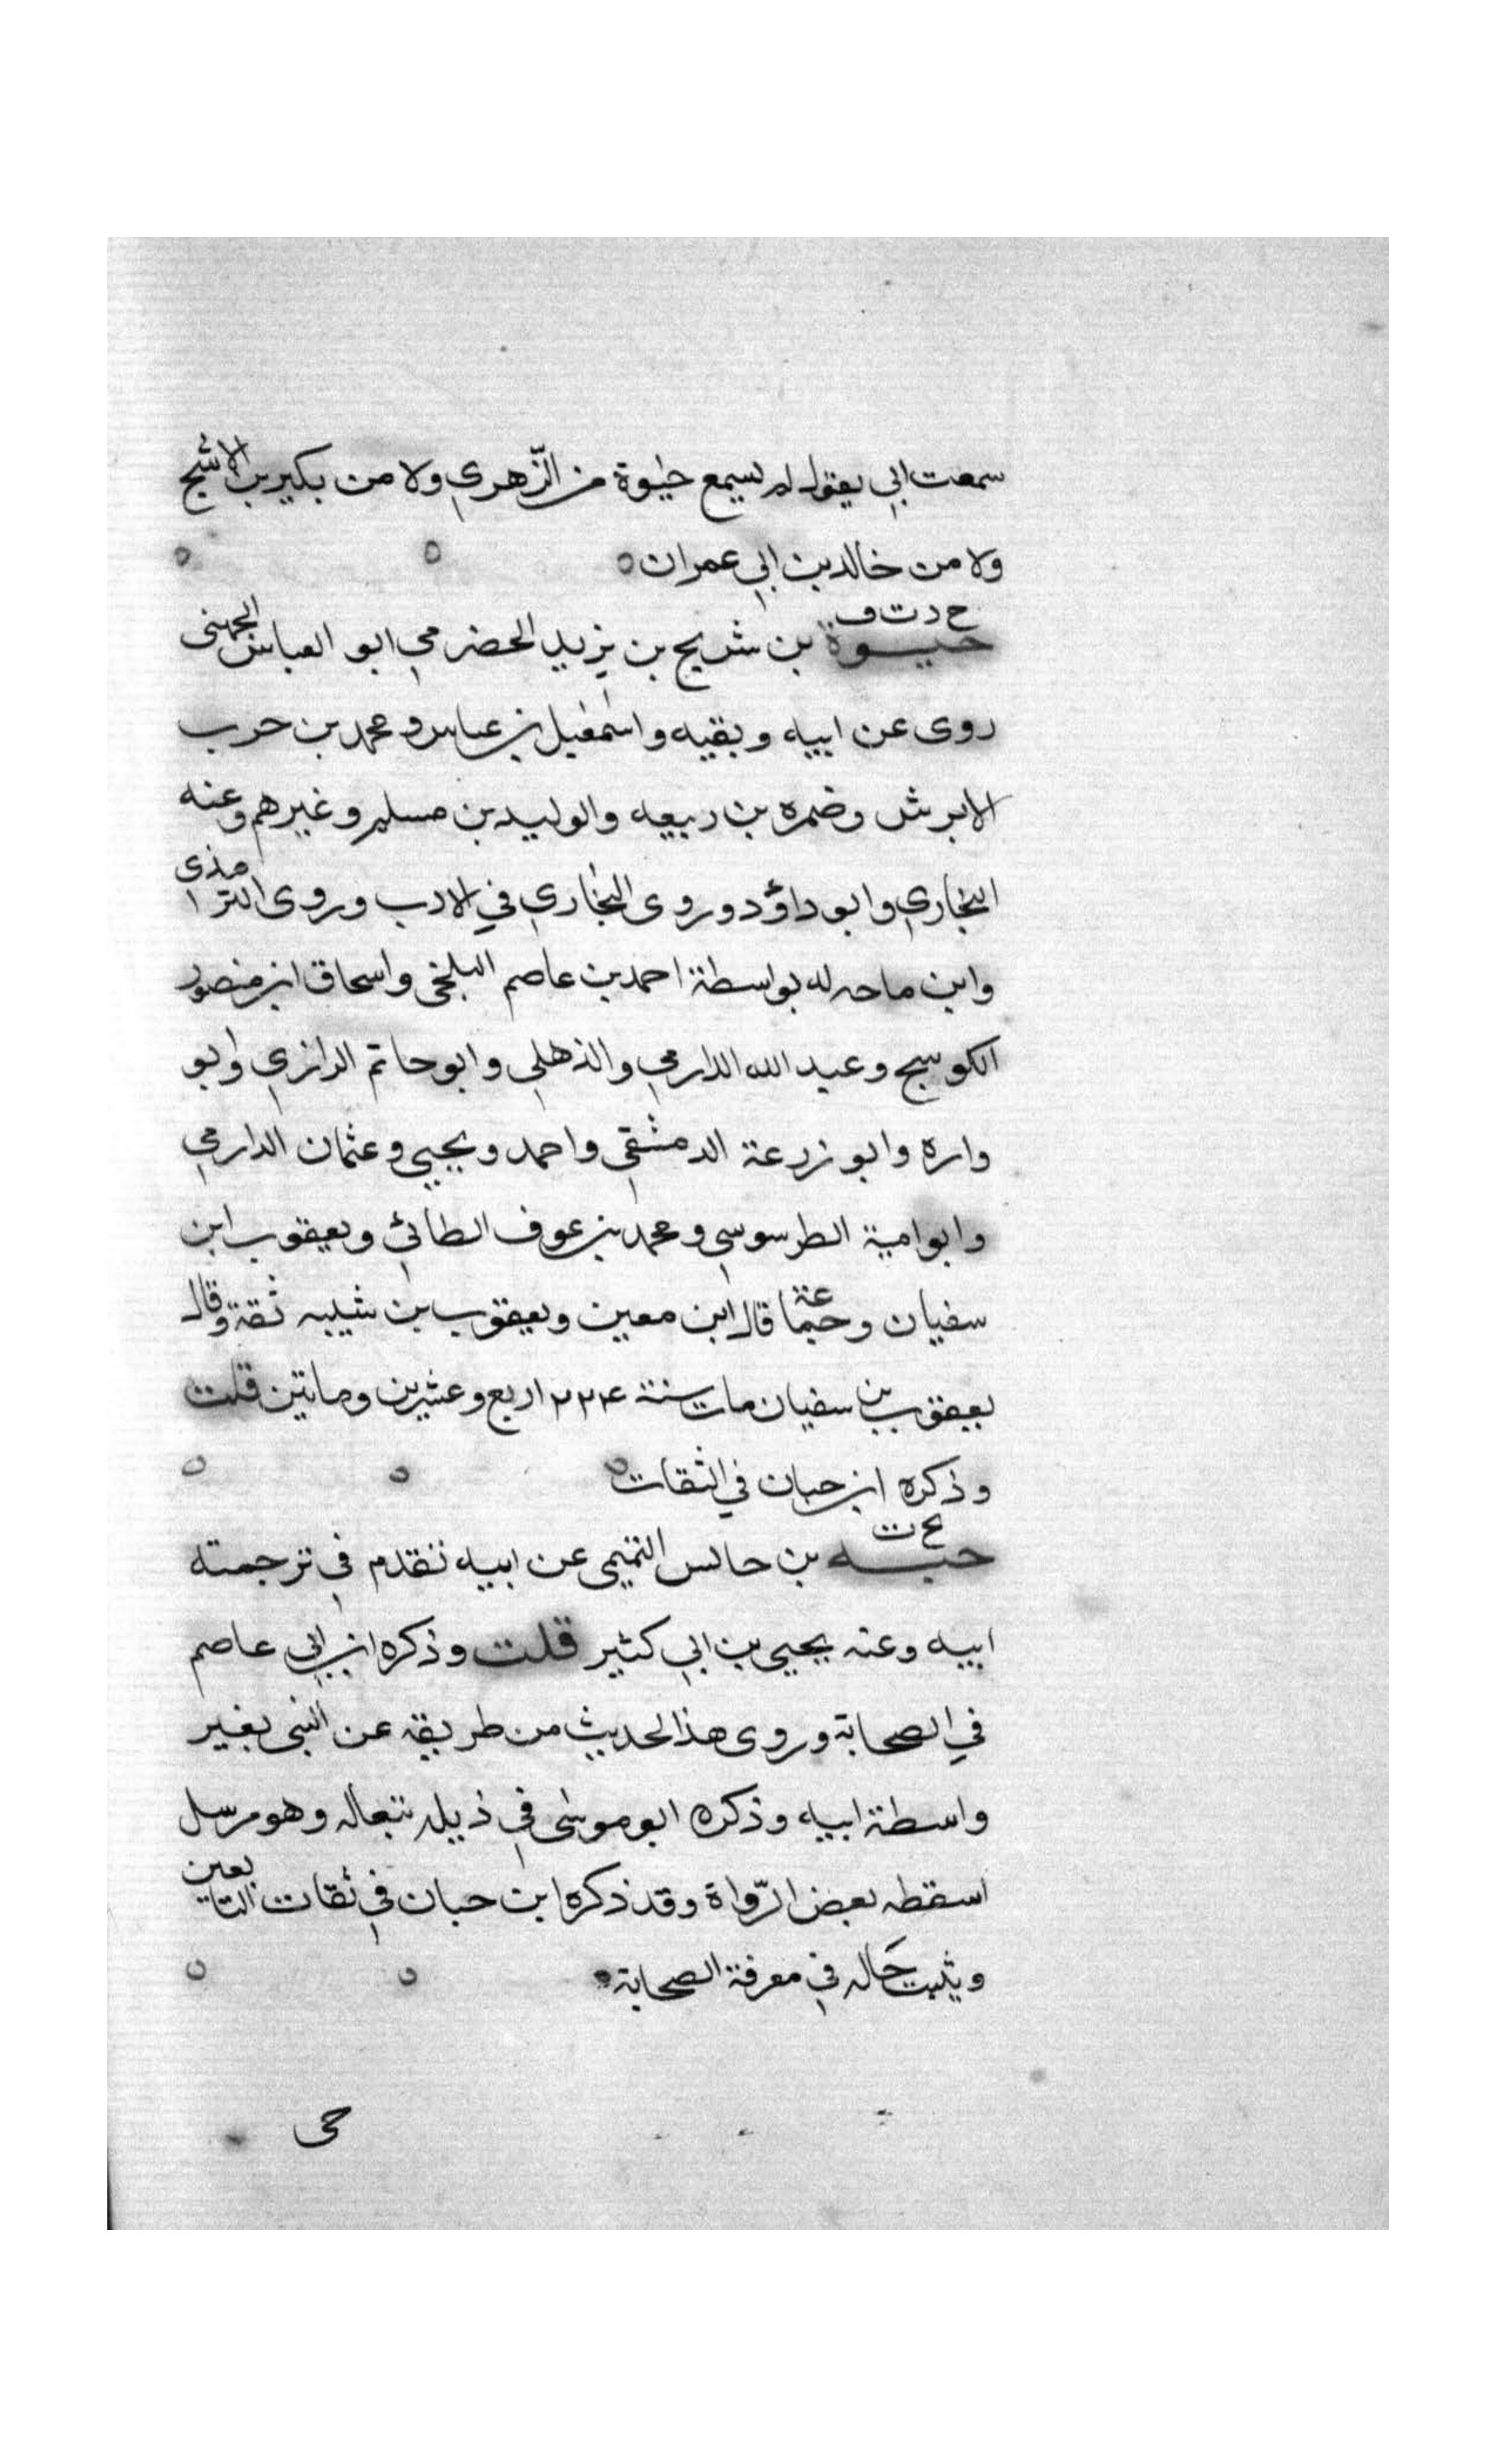 سمعت ابي يقول لم يسمع حيوة من الزّهري ولا من بكير بن الاشج
ولا من خالد بن ابي عمران
خ د ت ق
حيوة بن شريح بن يزيد الحضرمي ابو العباس
روى عن ابيه وبقيه واسمعيل بن عياس ومحمد بن حرب
الابرش وضمره بن ربيعه والوليد بن مسلم وغيرهم وعنه
البخاري وابو داؤد وروى البخاري في الادب وروى الترمذى
وابن ماجه له بواسطة احمد بن عاصم البلخى واسحاق ابن منصور
الكوسج وعبد الله الدارمي والذهلي وابو حاتم الرازي وابو
واره وابو زرعة الدمشقي واحمد ويحيي وعثمان الدارمي
وابو امية الطرسوسي ومحمد بن عوف الطائي ويعقوب ابن
سفيان وجماعة قال ابن معين ويعقوب بن شيبه ثقة وقال
يعقوب بن سفيان مات سنة ٢٢٤ اربع وعشرين وماتين قلت
وذكره ابن حبان في الثقات
حبه بن حابس التميمى عن ابيه تقدم في ترجمته
ابيه وعنه يحيى بن ابي كثير قلت وذكره ابن ابي عاصم
في الصحابة وروى هذا لحديث من طريقه عن النبى بغير
واسطة ابيه وذكره ابو موسى في ذيله تبعا له وهو مرسل
اسقطه بعض الرّواة وقد ذكره ابن حبان في ثقات التابعين
حاله في معرفة الصحابة
حى